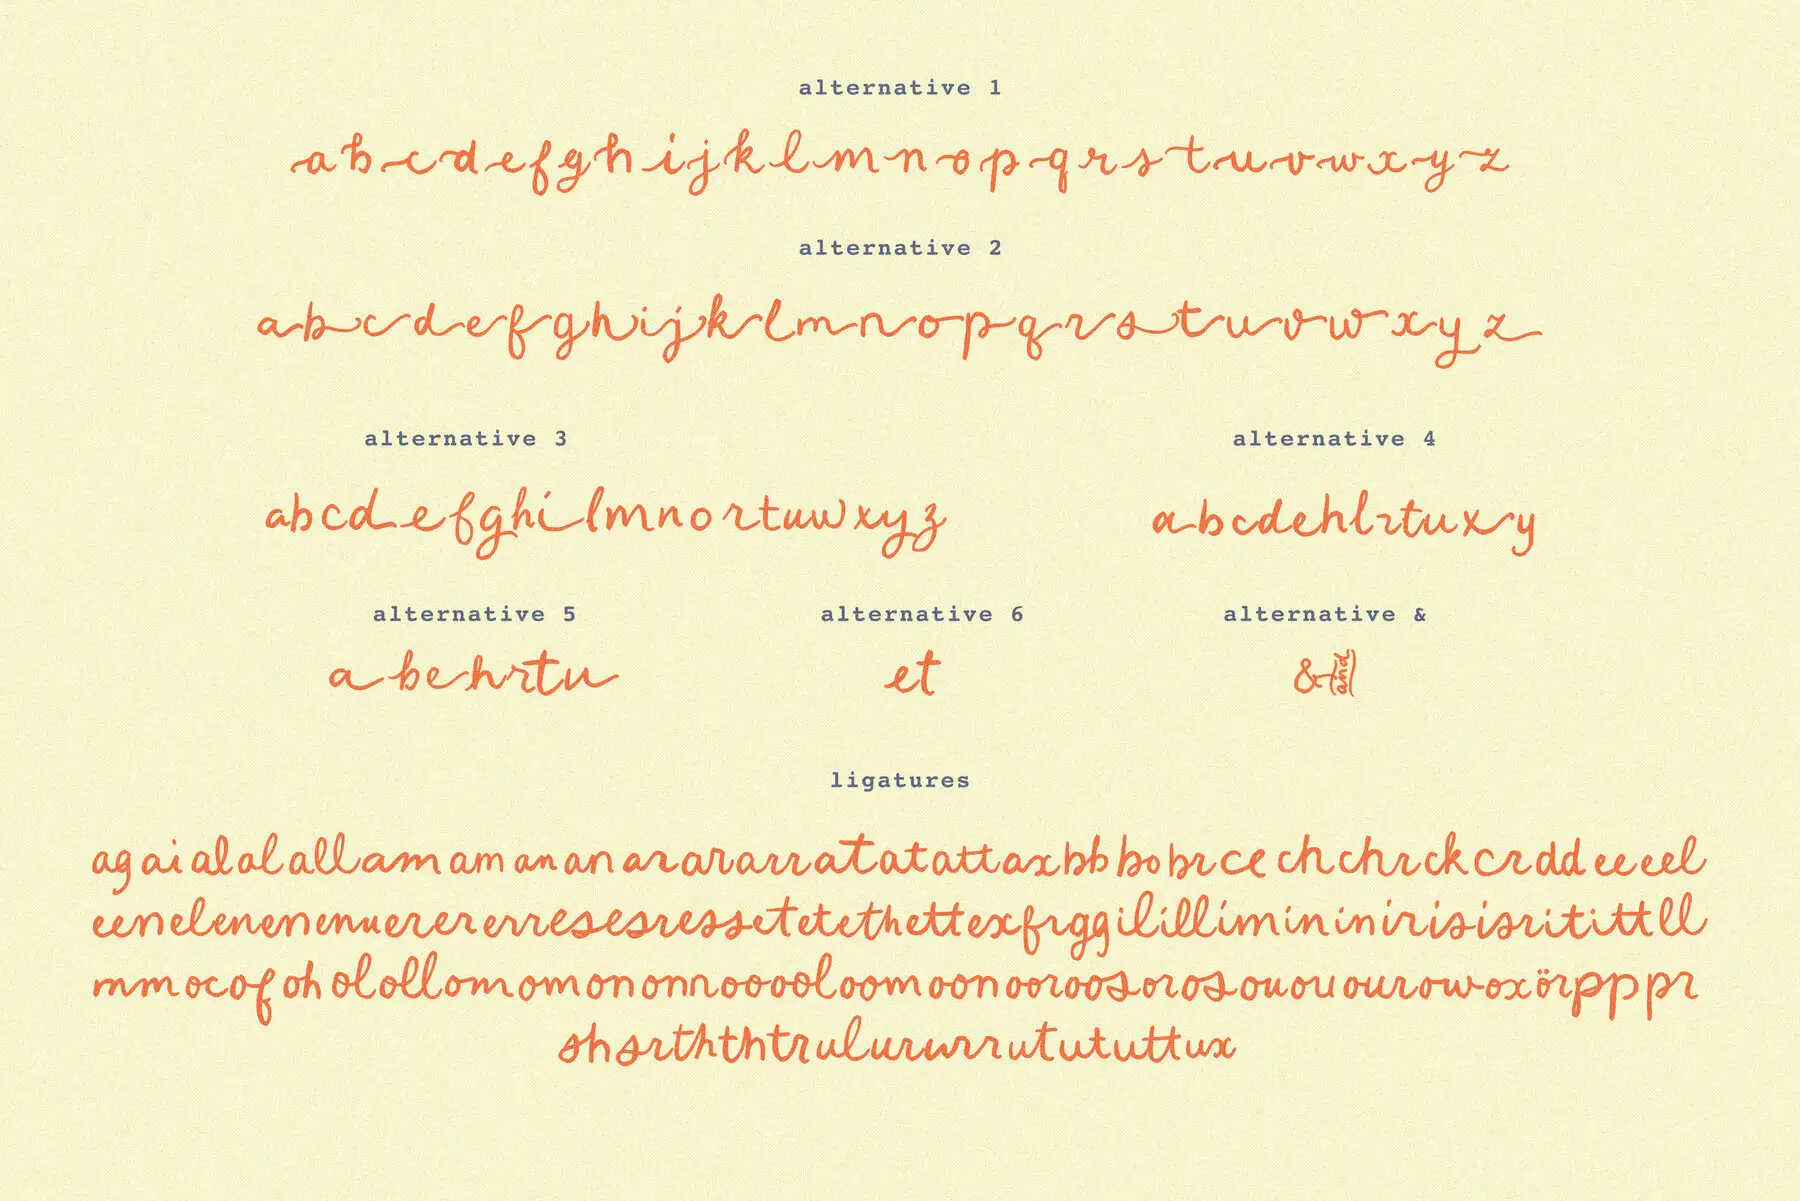 alternative 1
abcdefghijklmnopqrstuvwxyz
alternative 2
abcdefghijklmnopqrstuvwxyz
alternative 3
abcdefghilmnortuwxyz
alternative 4
abcdehlrtuxy
alternative 5
abehrtu
alternative 6
et
alternative &
& and
ligatures
agaialalallamamananararararratatattaxbbbobrcechchrckcrddeeeel
eenelenenenuererrerresesressetetethettexfrggilillimininirisisrititttll
mmocofoholollomomononnooooloomoonooroosorosououourowoxörppppr
shsrththtrulururrutututtux